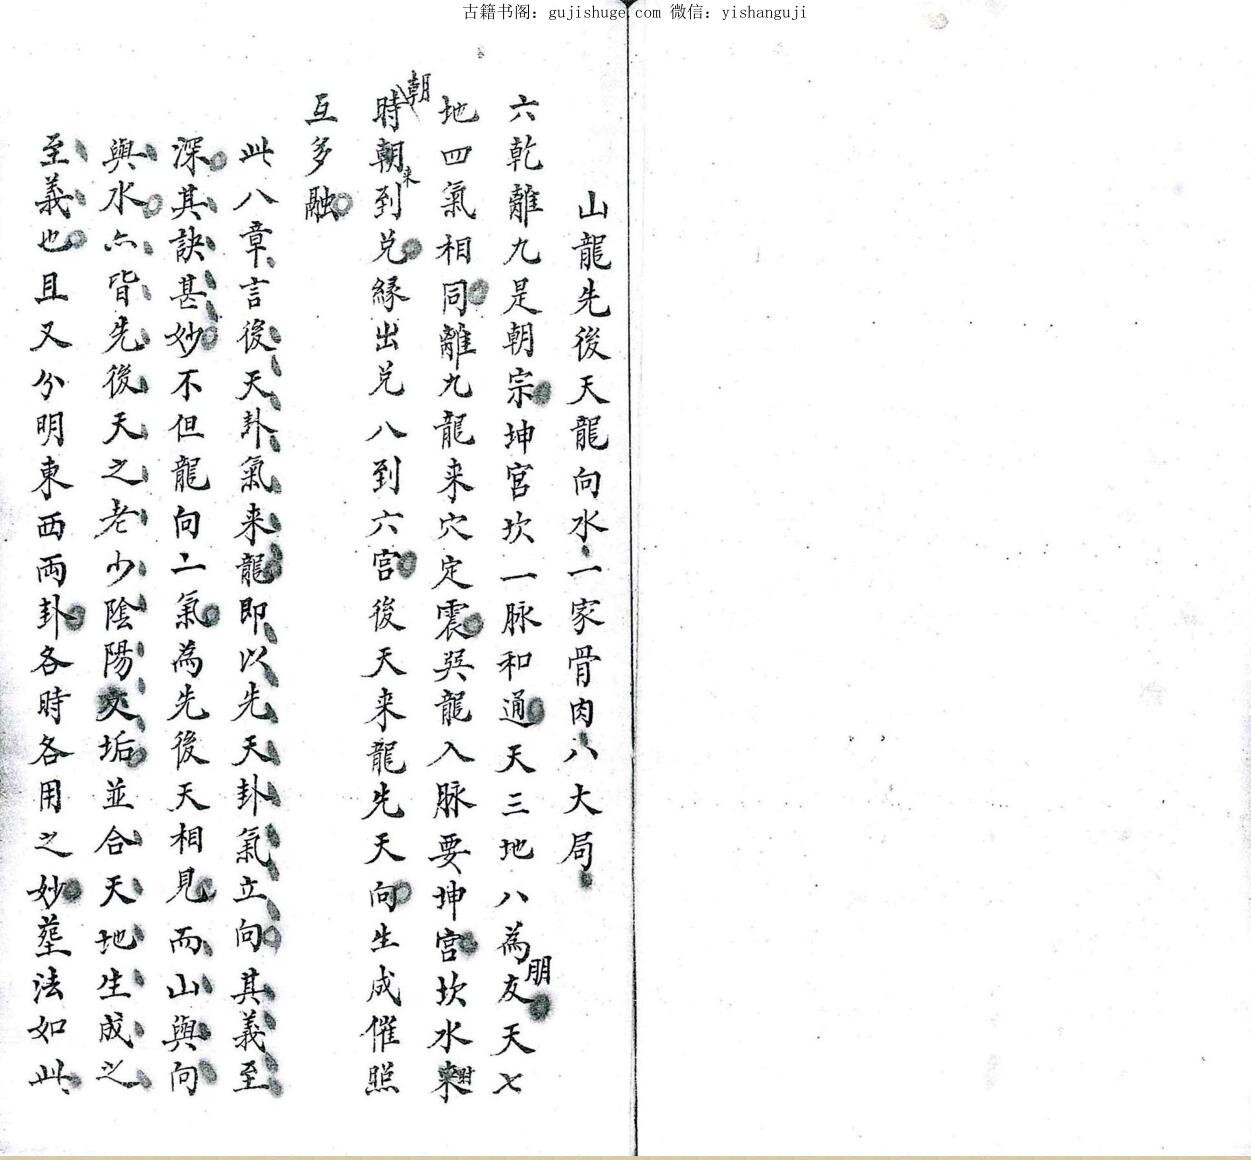 古籍书阁：gujishuge.com 微信：yishanguji
山龍先後天龍向水一家骨肉八大局
六乾離九是朝宗坤宮坎一脉和通天三地八為友朋天七
地四氣相同離九龍来穴定震吳龍入脉要坤宮坎水来
時朝朝来到兑縁出兑八到六宮後天来龍先天向生成催照
互多融
此八章言後天卦氣来龍即以先天卦氣立向其義至
深其訣甚妙不但龍向二氣為先後天相見而山與向
與水亦皆先後天之老少陰陽交垢並合天地生成之
至義也且又分明東西両卦各時各用之妙塟法如此